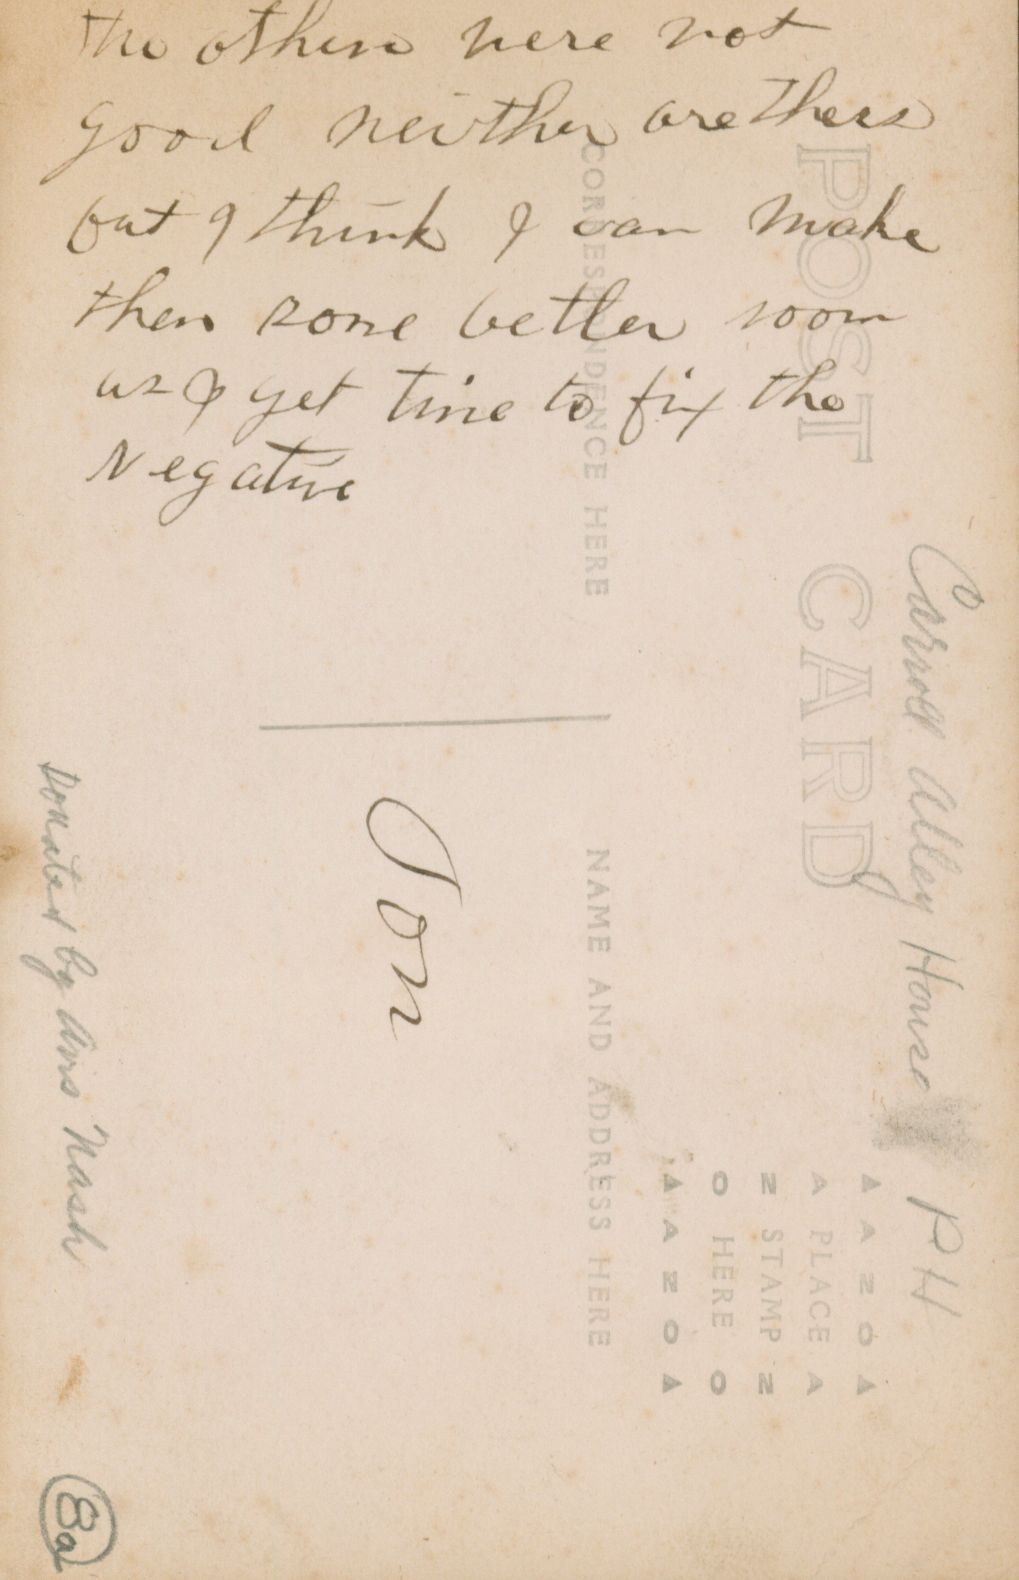 the others were not
good neither are thers
but I think I can make
then some better soon
as I get time to fix the
Negative
POST CARD
CORRESPONDENCE HERE
NAME AND ADDRESS HERE
Carroll Alley House PH
AZO
A PLACE A
Z STAMP Z
O HERE O
AZO
Ton
Donated by Mrs Nash
8a